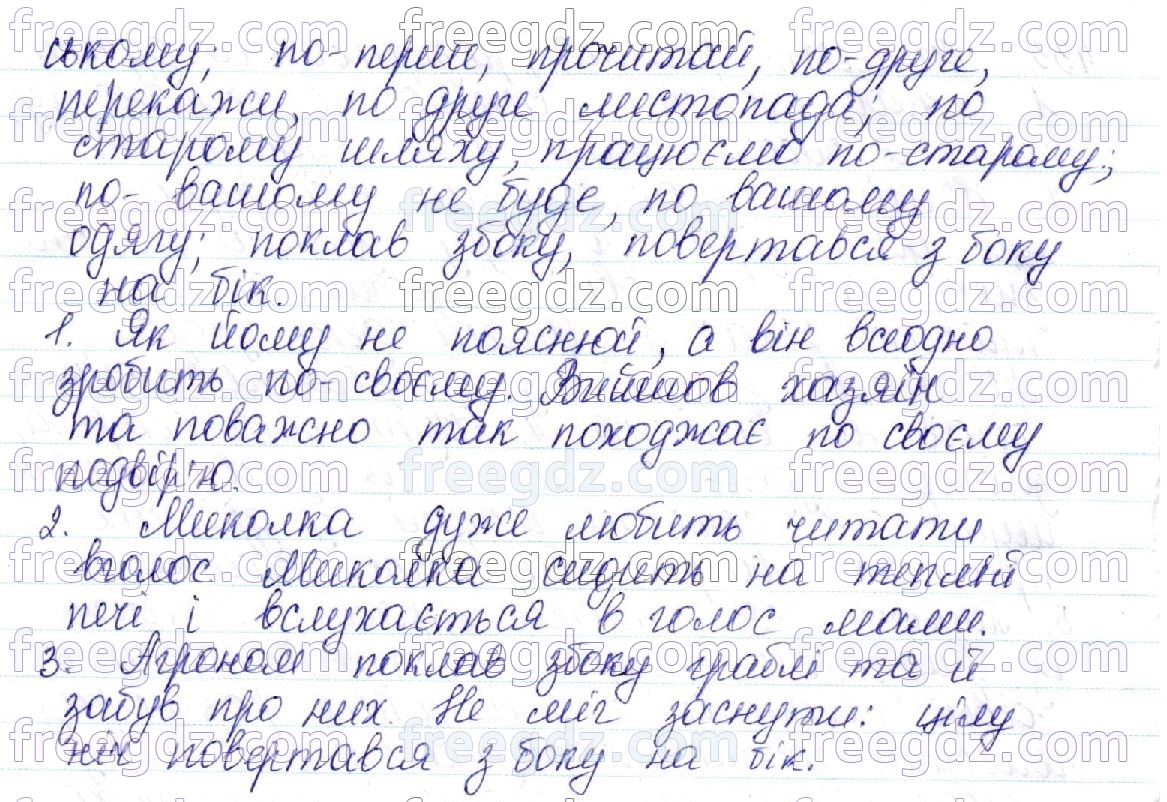 ському; по-перше, прочитай, по-друге,
перекажи, по друге листопада; по
старому шляху, працюємо по-старому;
по-вашому не буде, по вашому
одягу; поклав збоку, повертався з боку
на бік.
1. Як йому не пояснюй, а він всеодно
зробить по-своєму. Вийшов хазяїн
та поважно так походжає по своєму
подвір'ю.
2. Миколка дуже любить читати
вголос Миколка сидить на теплій
печі і вслухається в голос мами.
3. Агроном поклав збоку граблі та й
забув про них. Не міг заснути: цілу
ніч повертався з боку на бік.